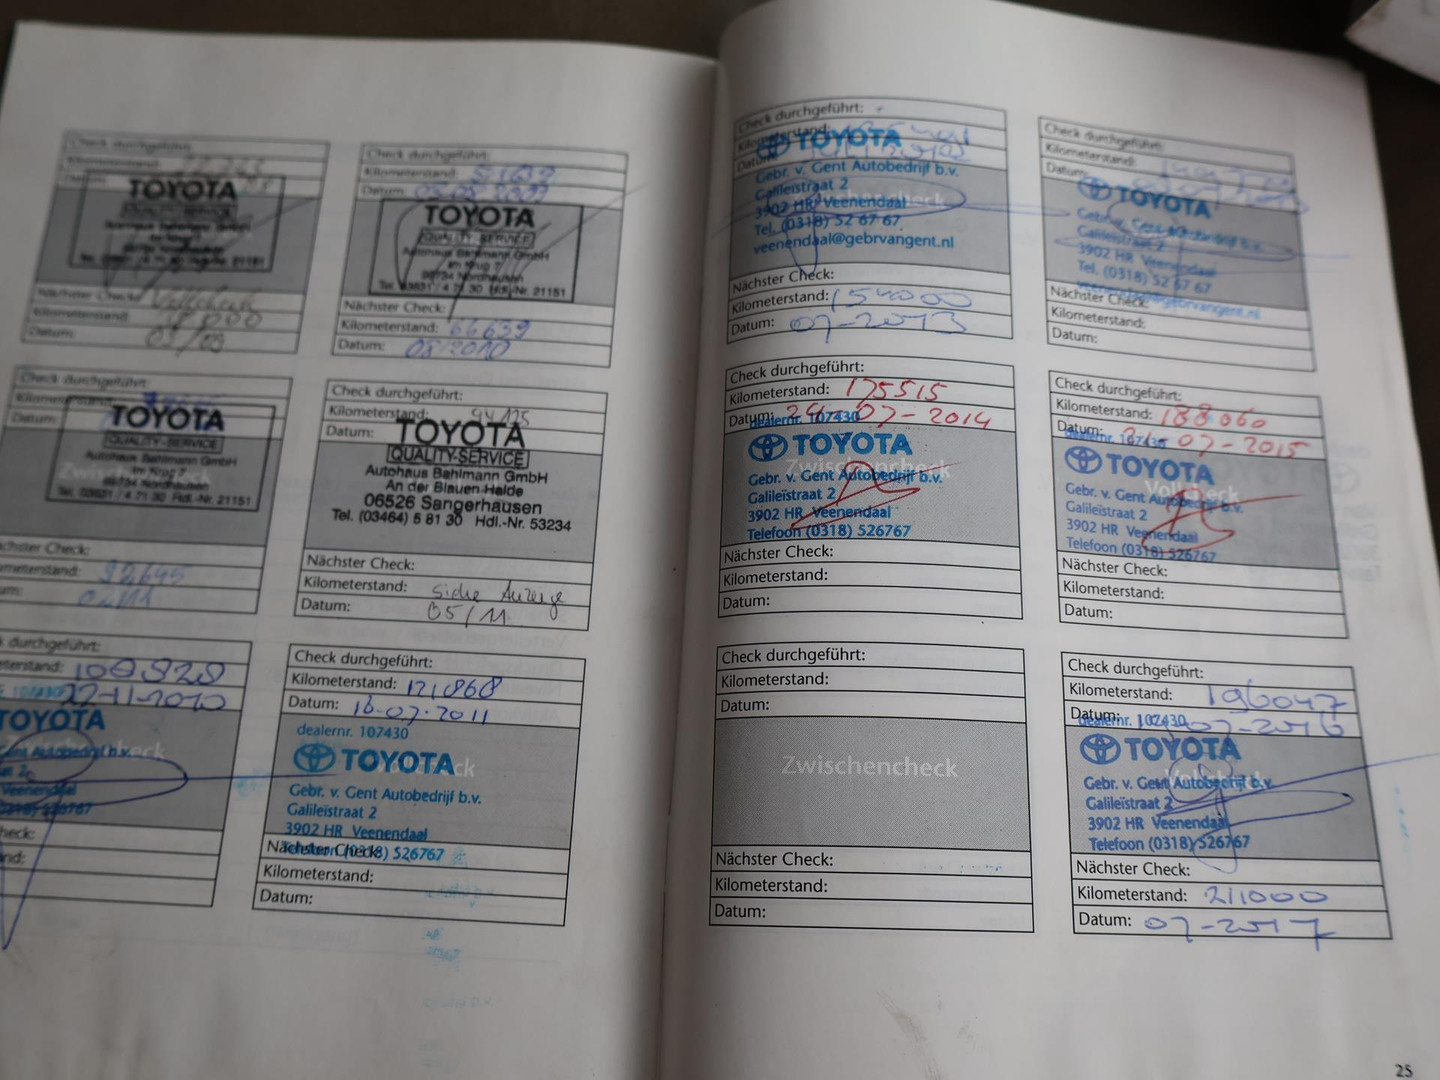 Check durchgeführt:
Kilometerstand:
TOYOTA
QUALITY-SERVICE
Nächster Check:
Kilometerstand:
Datum: 03/09
Check durchgeführt:
Kilometerstand: 51639
Datum:
TOYOTA
QUALITY-SERVICE
Autohaus Bahlmann GmbH
Im Krug 7
99734 Nordhausen
Tel. 03631 / 4 71 30 Hdl.-Nr. 21151
Nächster Check:
Kilometerstand: 66639
Datum: 08/2010
Check durchgeführt:
Datum:
TOYOTA
QUALITY-SERVICE
Autohaus Bahlmann GmbH
Im Krug 7
99734 Nordhausen
Tel. 03631 / 4 71 30 Hdl.-Nr. 21151
Check:
Check durchgeführt:
Kilometerstand: 94125
Datum:
TOYOTA
QUALITY-SERVICE
Autohaus Bahlmann GmbH
An der Blauen Halde
06526 Sangerhausen
Tel. (03464) 5 81 30 Hdl.-Nr. 53234
Nächster Check:
Kilometerstand: siehe Anzeige
Datum: 05/11
durchgeführt:
108828
TOYOTA
Gent Autobedrijf b.v.
Veenendaal
Check durchgeführt:
Kilometerstand: 121868
Datum: 18-07-2011
dealernr. 107430
TOYOTA
Gebr. v. Gent Autobedrijf b.v.
Galileïstraat 2
3902 HR Veenendaal
Telefoon (0318) 526767
Nächster Check:
Kilometerstand:
Datum:
Check durchgeführt:
Kilometerstand:
Datum:
TOYOTA
Gebr. v. Gent Autobedrijf b.v.
Galileïstraat 2
3902 HR Veenendaal
Tel. (0318) 52 67 67
veenendaal@gebrvangent.nl
Nächster Check:
Kilometerstand: 154000
Datum: 07-2013
Check durchgeführt:
Kilometerstand:
Datum:
TOYOTA
Gebr. v. Gent Autobedrijf b.v.
Galileïstraat 2
3902 HR Veenendaal
Tel. (0318) 52 67 67
veenendaal@gebrvangent.nl
Nächster Check:
Kilometerstand:
Datum:
Check durchgeführt:
Kilometerstand: 175515
Datum: 24-07-2014
dealernr. 107430
TOYOTA
Zwischencheck
Gebr. v. Gent Autobedrijf b.v.
Galileïstraat 2
3902 HR Veenendaal
Telefoon (0318) 526767
Nächster Check:
Kilometerstand:
Datum:
Check durchgeführt:
Kilometerstand: 188060
Datum: 07-2015
dealernr. 107430
TOYOTA
Vollcheck
Gebr. v. Gent Autobedrijf b.v.
Galileïstraat 2
3902 HR Veenendaal
Telefoon (0318) 526767
Nächster Check:
Kilometerstand:
Datum:
Check durchgeführt:
Kilometerstand:
Datum:
Zwischencheck
Nächster Check:
Kilometerstand:
Datum:
Check durchgeführt:
Kilometerstand: 196047
Datum: 07-2016
dealernr. 107430
TOYOTA
Vollcheck
Gebr. v. Gent Autobedrijf b.v.
Galileïstraat 2
3902 HR Veenendaal
Telefoon (0318) 526767
Nächster Check:
Kilometerstand: 211000
Datum: 07-2017
25